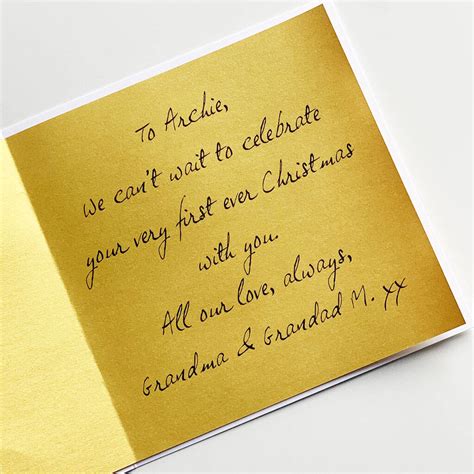 To Archie,
We can't wait to celebrate
your very first ever Christmas
with you.
All our love, always,
Grandma & Grandad M. xx